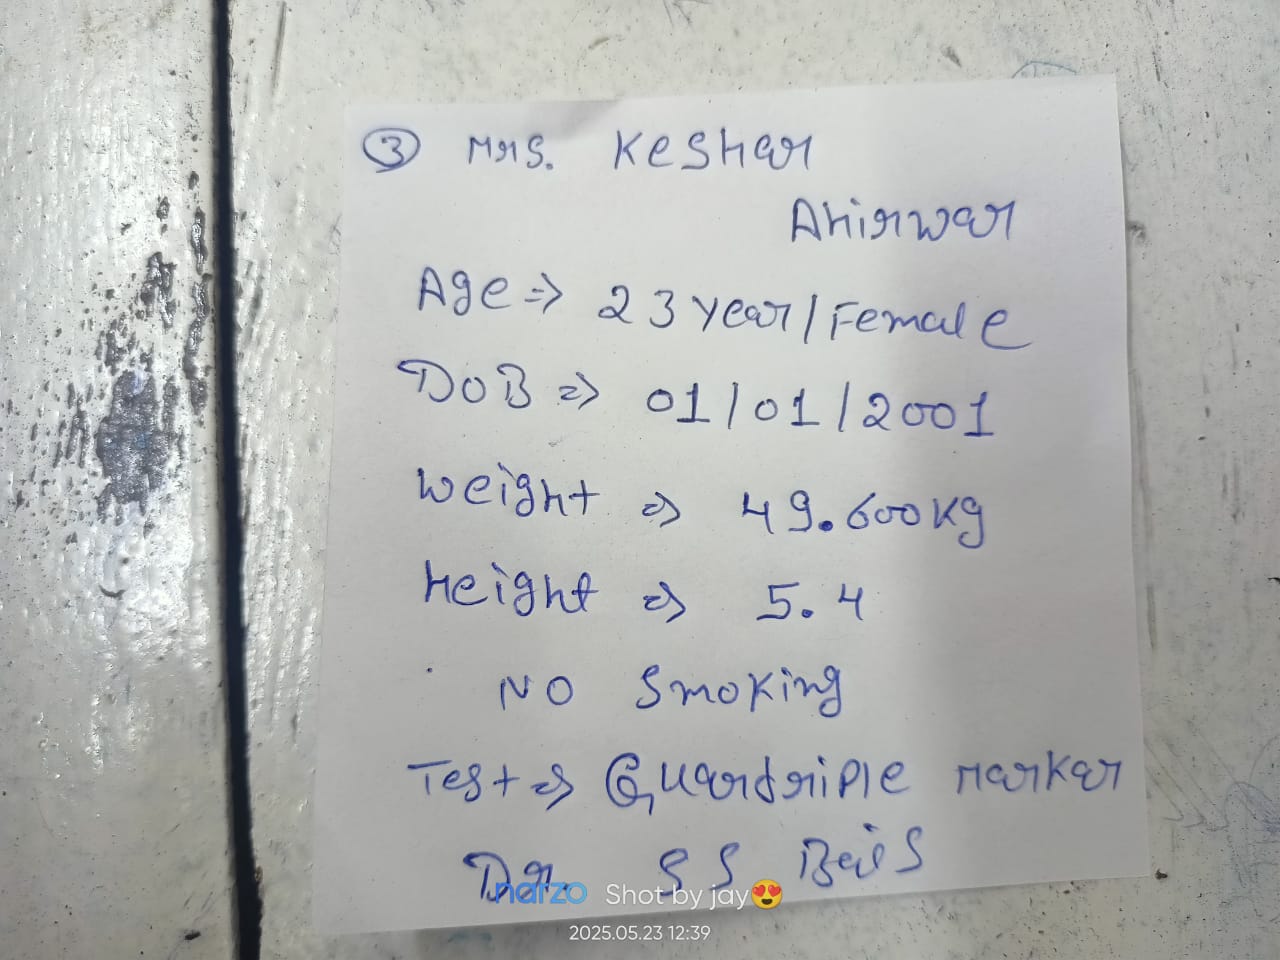 ③ Mrs. Keshar
Ahirwar
Age ⇒ 23 year / Female
DOB ⇒ 01/01/2001
Weight ⇒ 49.600 kg
Height ⇒ 5.4
NO Smoking
Test ⇒ Quardriple markar
Dr. S S Bais
narzo Shot by jay😍
2025.05.23 12:39